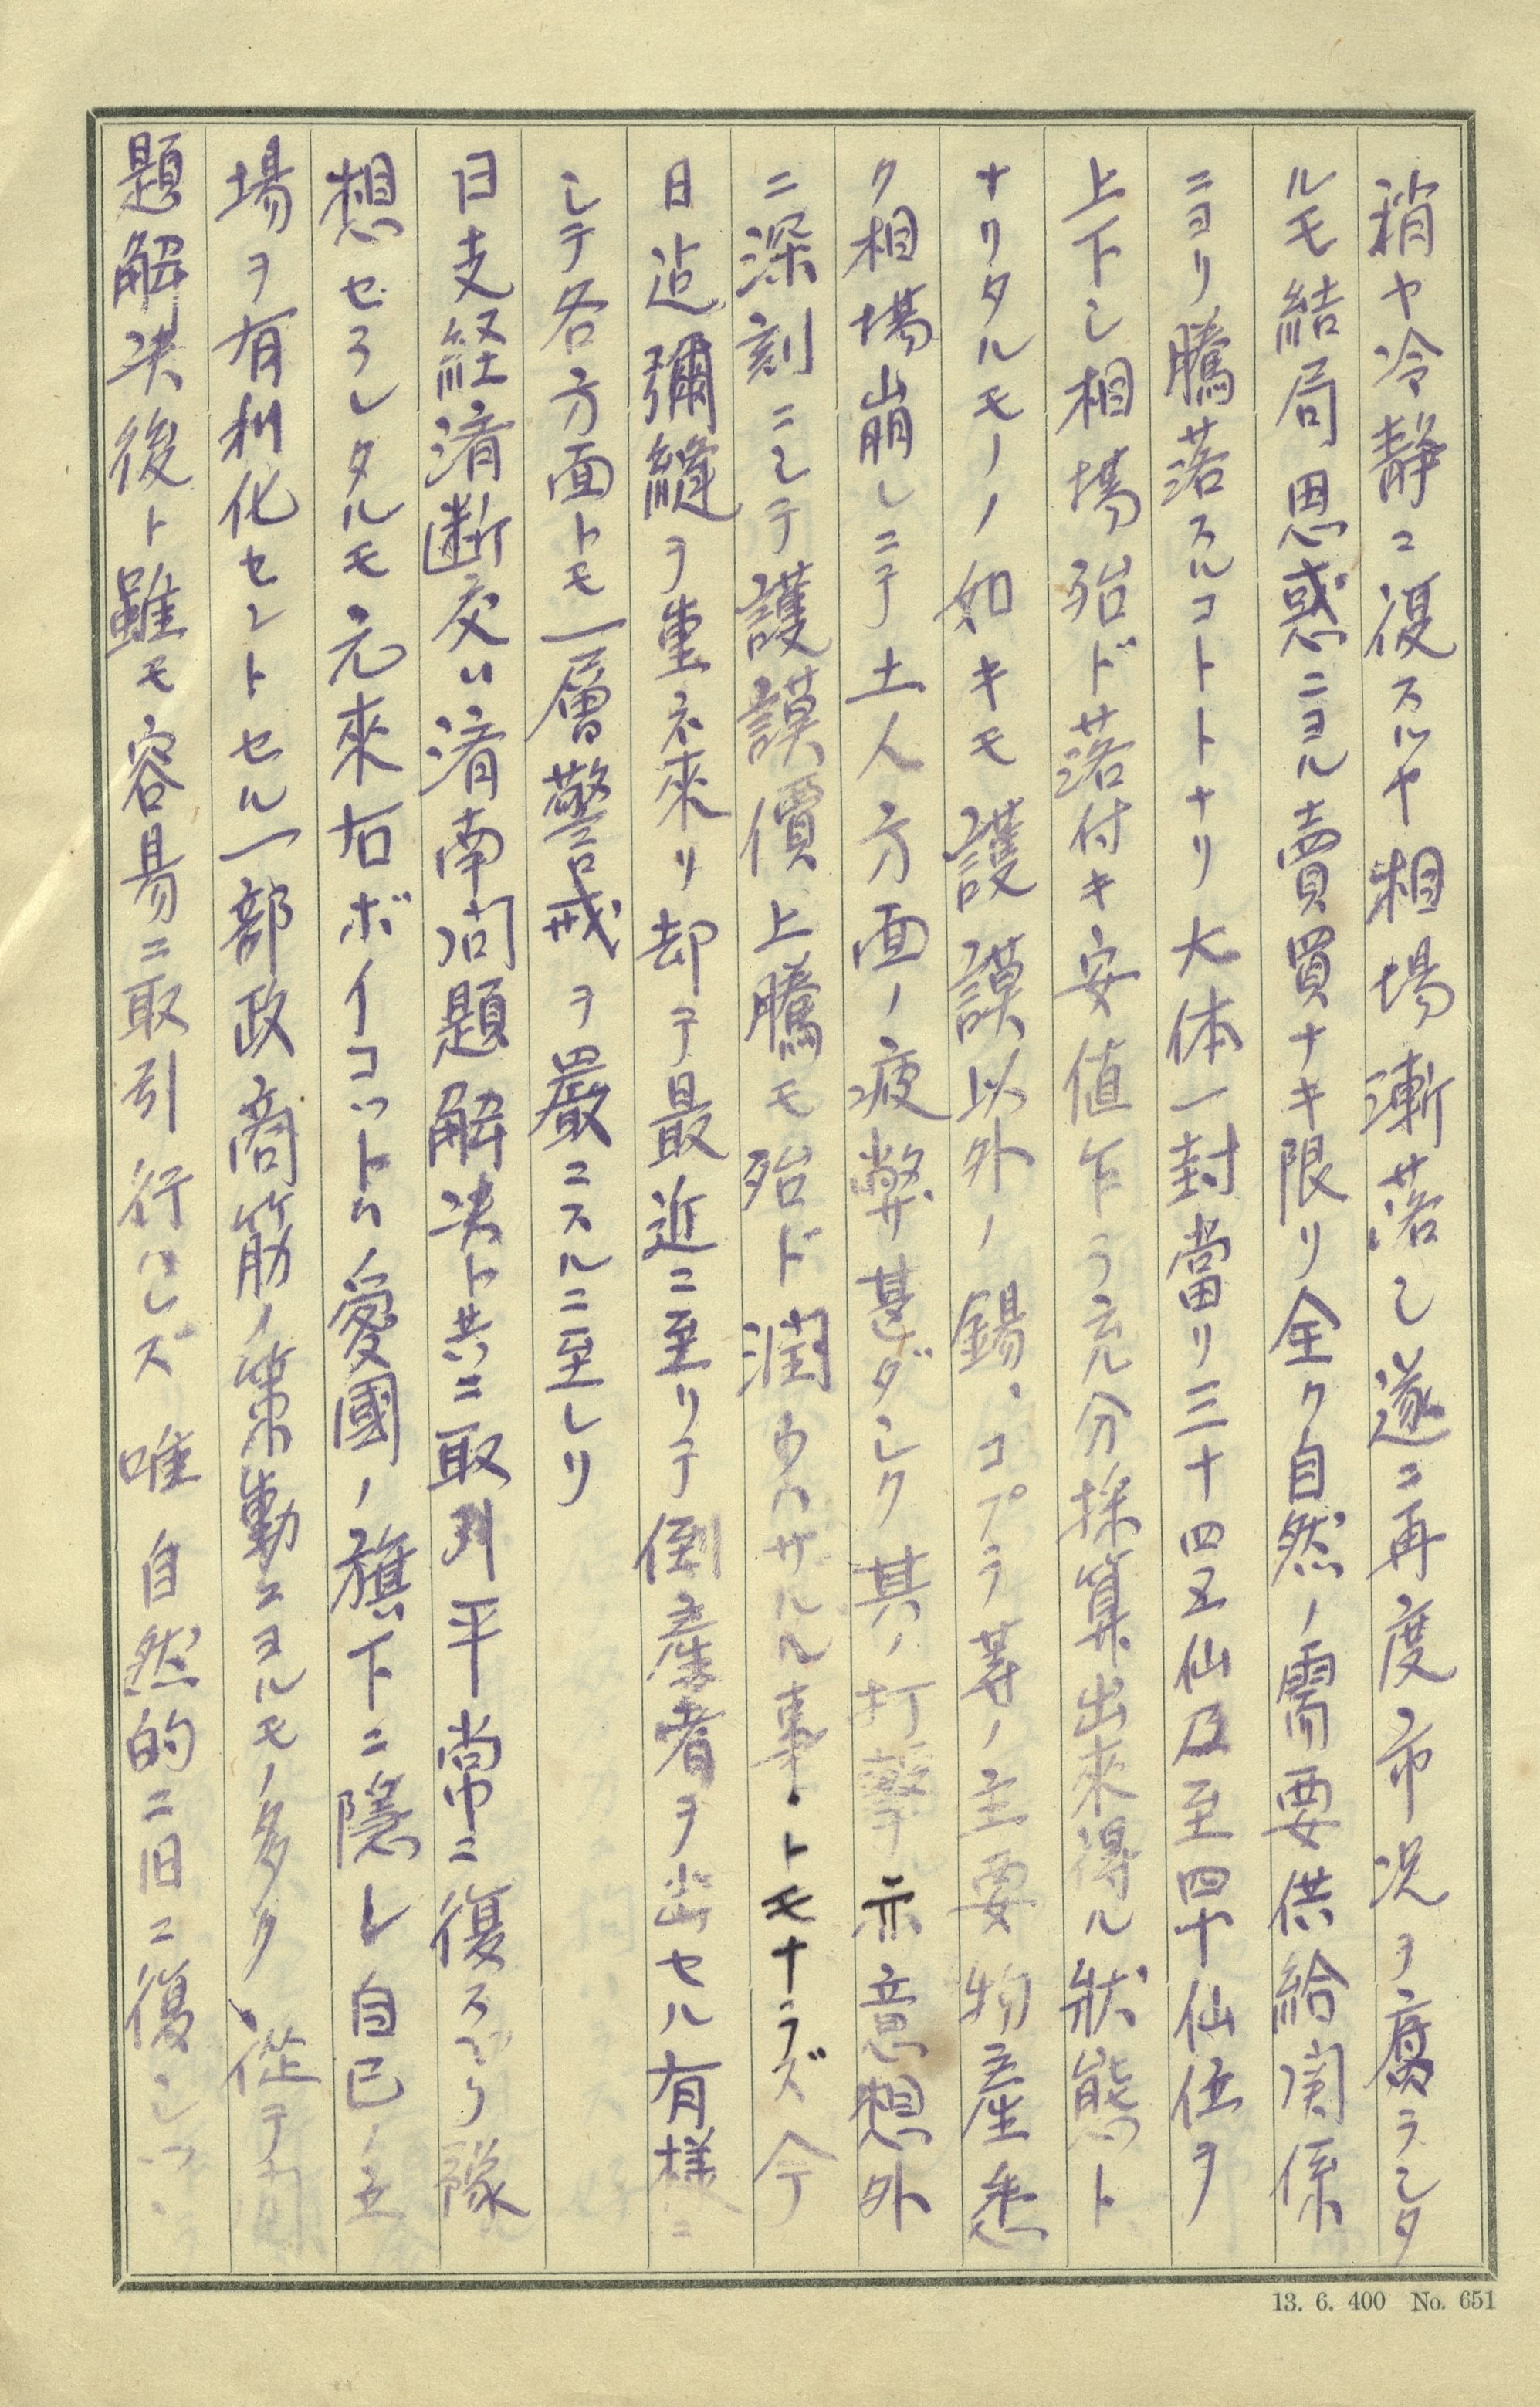 稍ヤ冷静ニ復スルヤ相場漸落シ遂ニ再度市況ヲ腐ラシタ
ルモ結局思惑ニヨル賣買ナキ限リ全ク自然ノ需要供給関係
ニヨリ騰落スルコトトナリ大体一封當リ三十四五仙及至四十仙位ヲ
上下シ相場殆ド落付キ安値乍ラ充分採算出來得ル狀態ト
ナリタルモノノ如キモ護謨以外ノ錫、コプラ等ノ主要物産悉
ク相場崩レニテ土人方面ノ疲弊甚ダシク其ノ打撃亦意想外
ニ深刻ニシテ護謨價上騰モ殆ド潤ハサルル事トモナラズ今
日迠彌縫ヲ重ネ來リ却テ最近ニ至リテ倒産者ヲ出セル有様ニ
シテ各方面トモ一層警戒ヲ嚴ニスルニ至レリ
日支経済断交ハ済南问題解决ト共ニ取引平常ニ復スベク豫
想セラレタルモ元來右ボイコットハ愛國ノ旗下ニ隠レ自己ノ立
場ヲ有利化セントセル一部政商筋ノ策動ニヨルモノ多ク、從テ
題解决後ト雖モ容易ニ取引行ハレズ唯自然的ニ旧ニ復シツ
13. 6. 400 No. 651